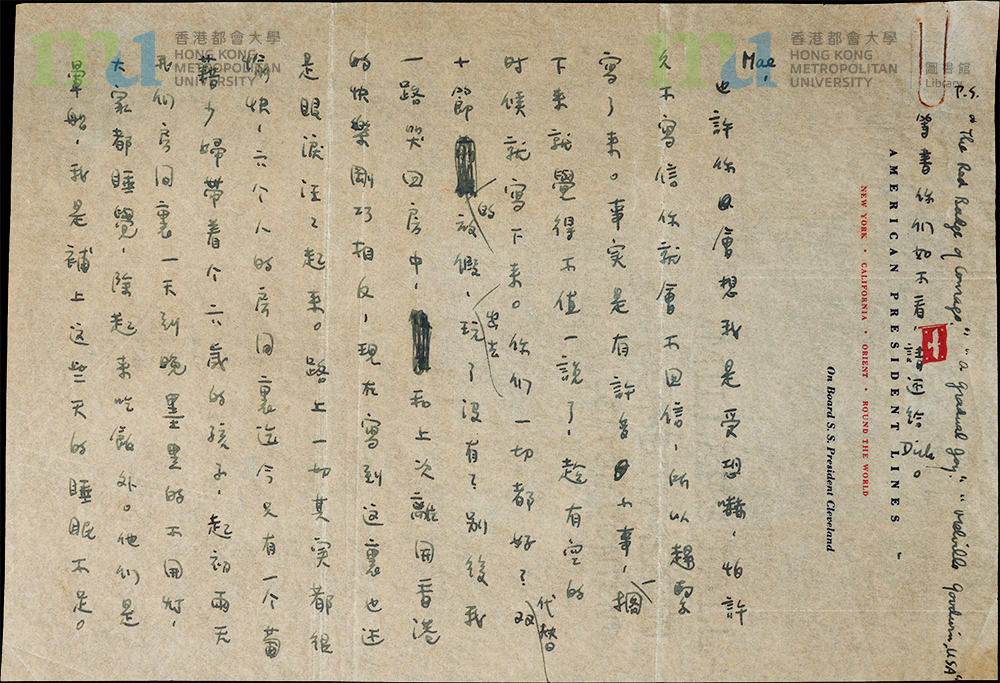 香港都會大學
HONG KONG
METROPOLITAN
UNIVERSITY
香港都會大學
HONG KONG
METROPOLITAN
UNIVERSITY
圖書館
Library
P.S. "The Red Badge of Courage", "a gradual joy," "Melville Goodwin, USA"
書你们如不看,
Dick。
AMERICAN PRESIDENT LINES
NEW YORK • CALIFORNIA • ORIENT • ROUND THE WORLD
On Board S. S. President Cleveland
Mae,
也許你会會想我是受恐嚇,怕許
久不寫信你就會不回信,所以趕緊
寫了來。事实是有許多小事,擱
下來就覺得不值一說了,趁有空的
时候就寫下來。你们一切都好?双
代替
十節的放假,出去玩了沒有?别後我
一路哭回房中,和上次離開香港
的快樂剛巧相反,現在寫到這裏也还
是眼淚汪汪起來。路上一切其实都很
愉快,六个人的房间裏迄今只有一个葡
萄少婦帶着个六歲的孩子,起初兩天
我们房间裏一天到晚墨黑的不開灯,
大家都睡覺,除起來吃飯外。他们是
暈船,我是補上這些天的睡眠不足。